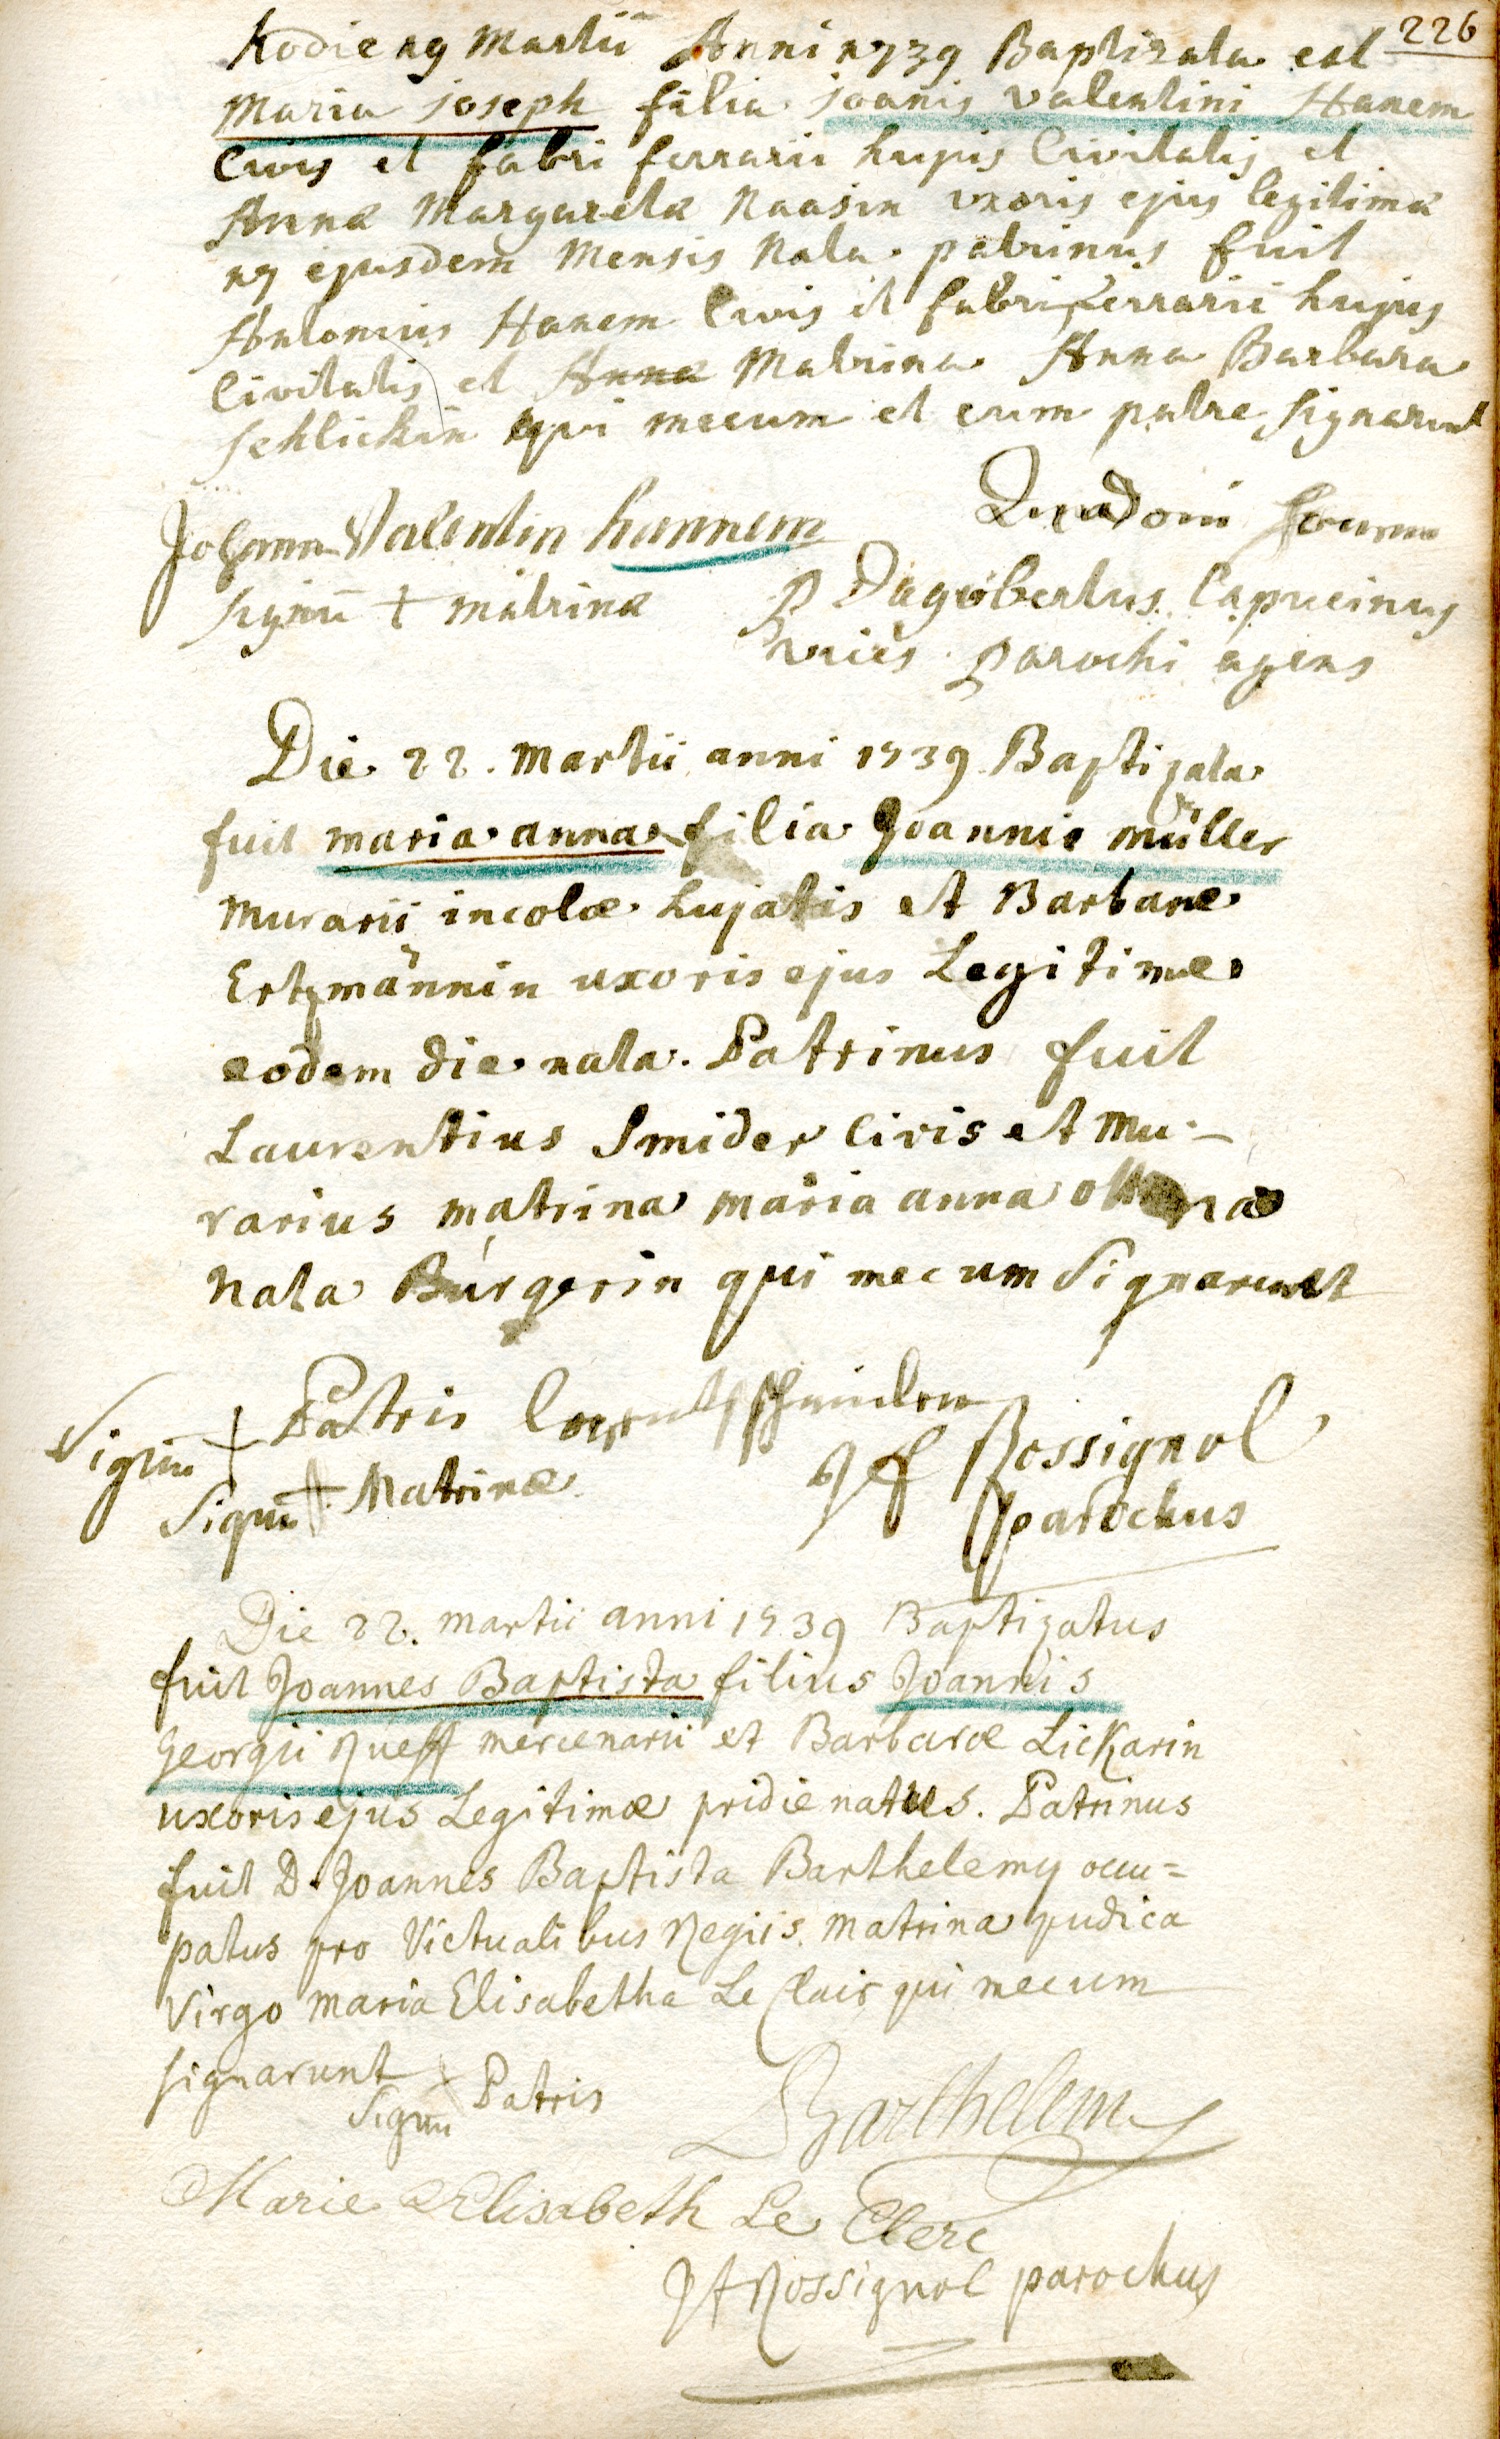 226
hodie 19 Martii Anni 1739 Baptizata est
Maria Joseph filia joanis valentini Hanem
Civis et fabri ferrarii hujus Civitatis et
Annæ Margaretæ Naasin uxoris ejus legitimæ
19 ejusdem Mensis Nata. patrinus fuit
Antonius Hanem Civis et fabri ferrarii hujus
Civitatis et Annæ Matrina Anna Barbara
schlickin qui mecum et cum patre signarunt
Johann Valentin hannem
signū + matrinæ P Dagobertus Capucinus
vices parochi agens
Die 22. Martii anni 1739 Baptizata
fuit maria anna filia Joannis müller
Murarii incolæ hujatis et Barbaræ
Ertzmännin uxoris ejus Legitimæ
eodem die nata. Patrinus fuit
Laurentius Smider Civis et Mu-
rarius matrina maria anna
nata Bürgerin qui mecum Signarunt
Signū + Patris
Signū + Matrinæ JF Rossignol
parochus
Die 22. martii anni 1739 Baptizatus
fuit Joannes Baptista filius Joannis
Georgii Rueff mercenarii et Barbaræ Lickarin
uxoris ejus Legitimæ pridie natus. Patrinus
fuit D. Joannes Baptista Barthelemy occu=
patus pro Victualibus Regiis. Matrina pudica
Virgo maria Elisabetha Le Clair qui mecum
signarunt
Signū Patris Barthelemy
Marie Elisabeth Le Clerc
JF Rossignol parochus